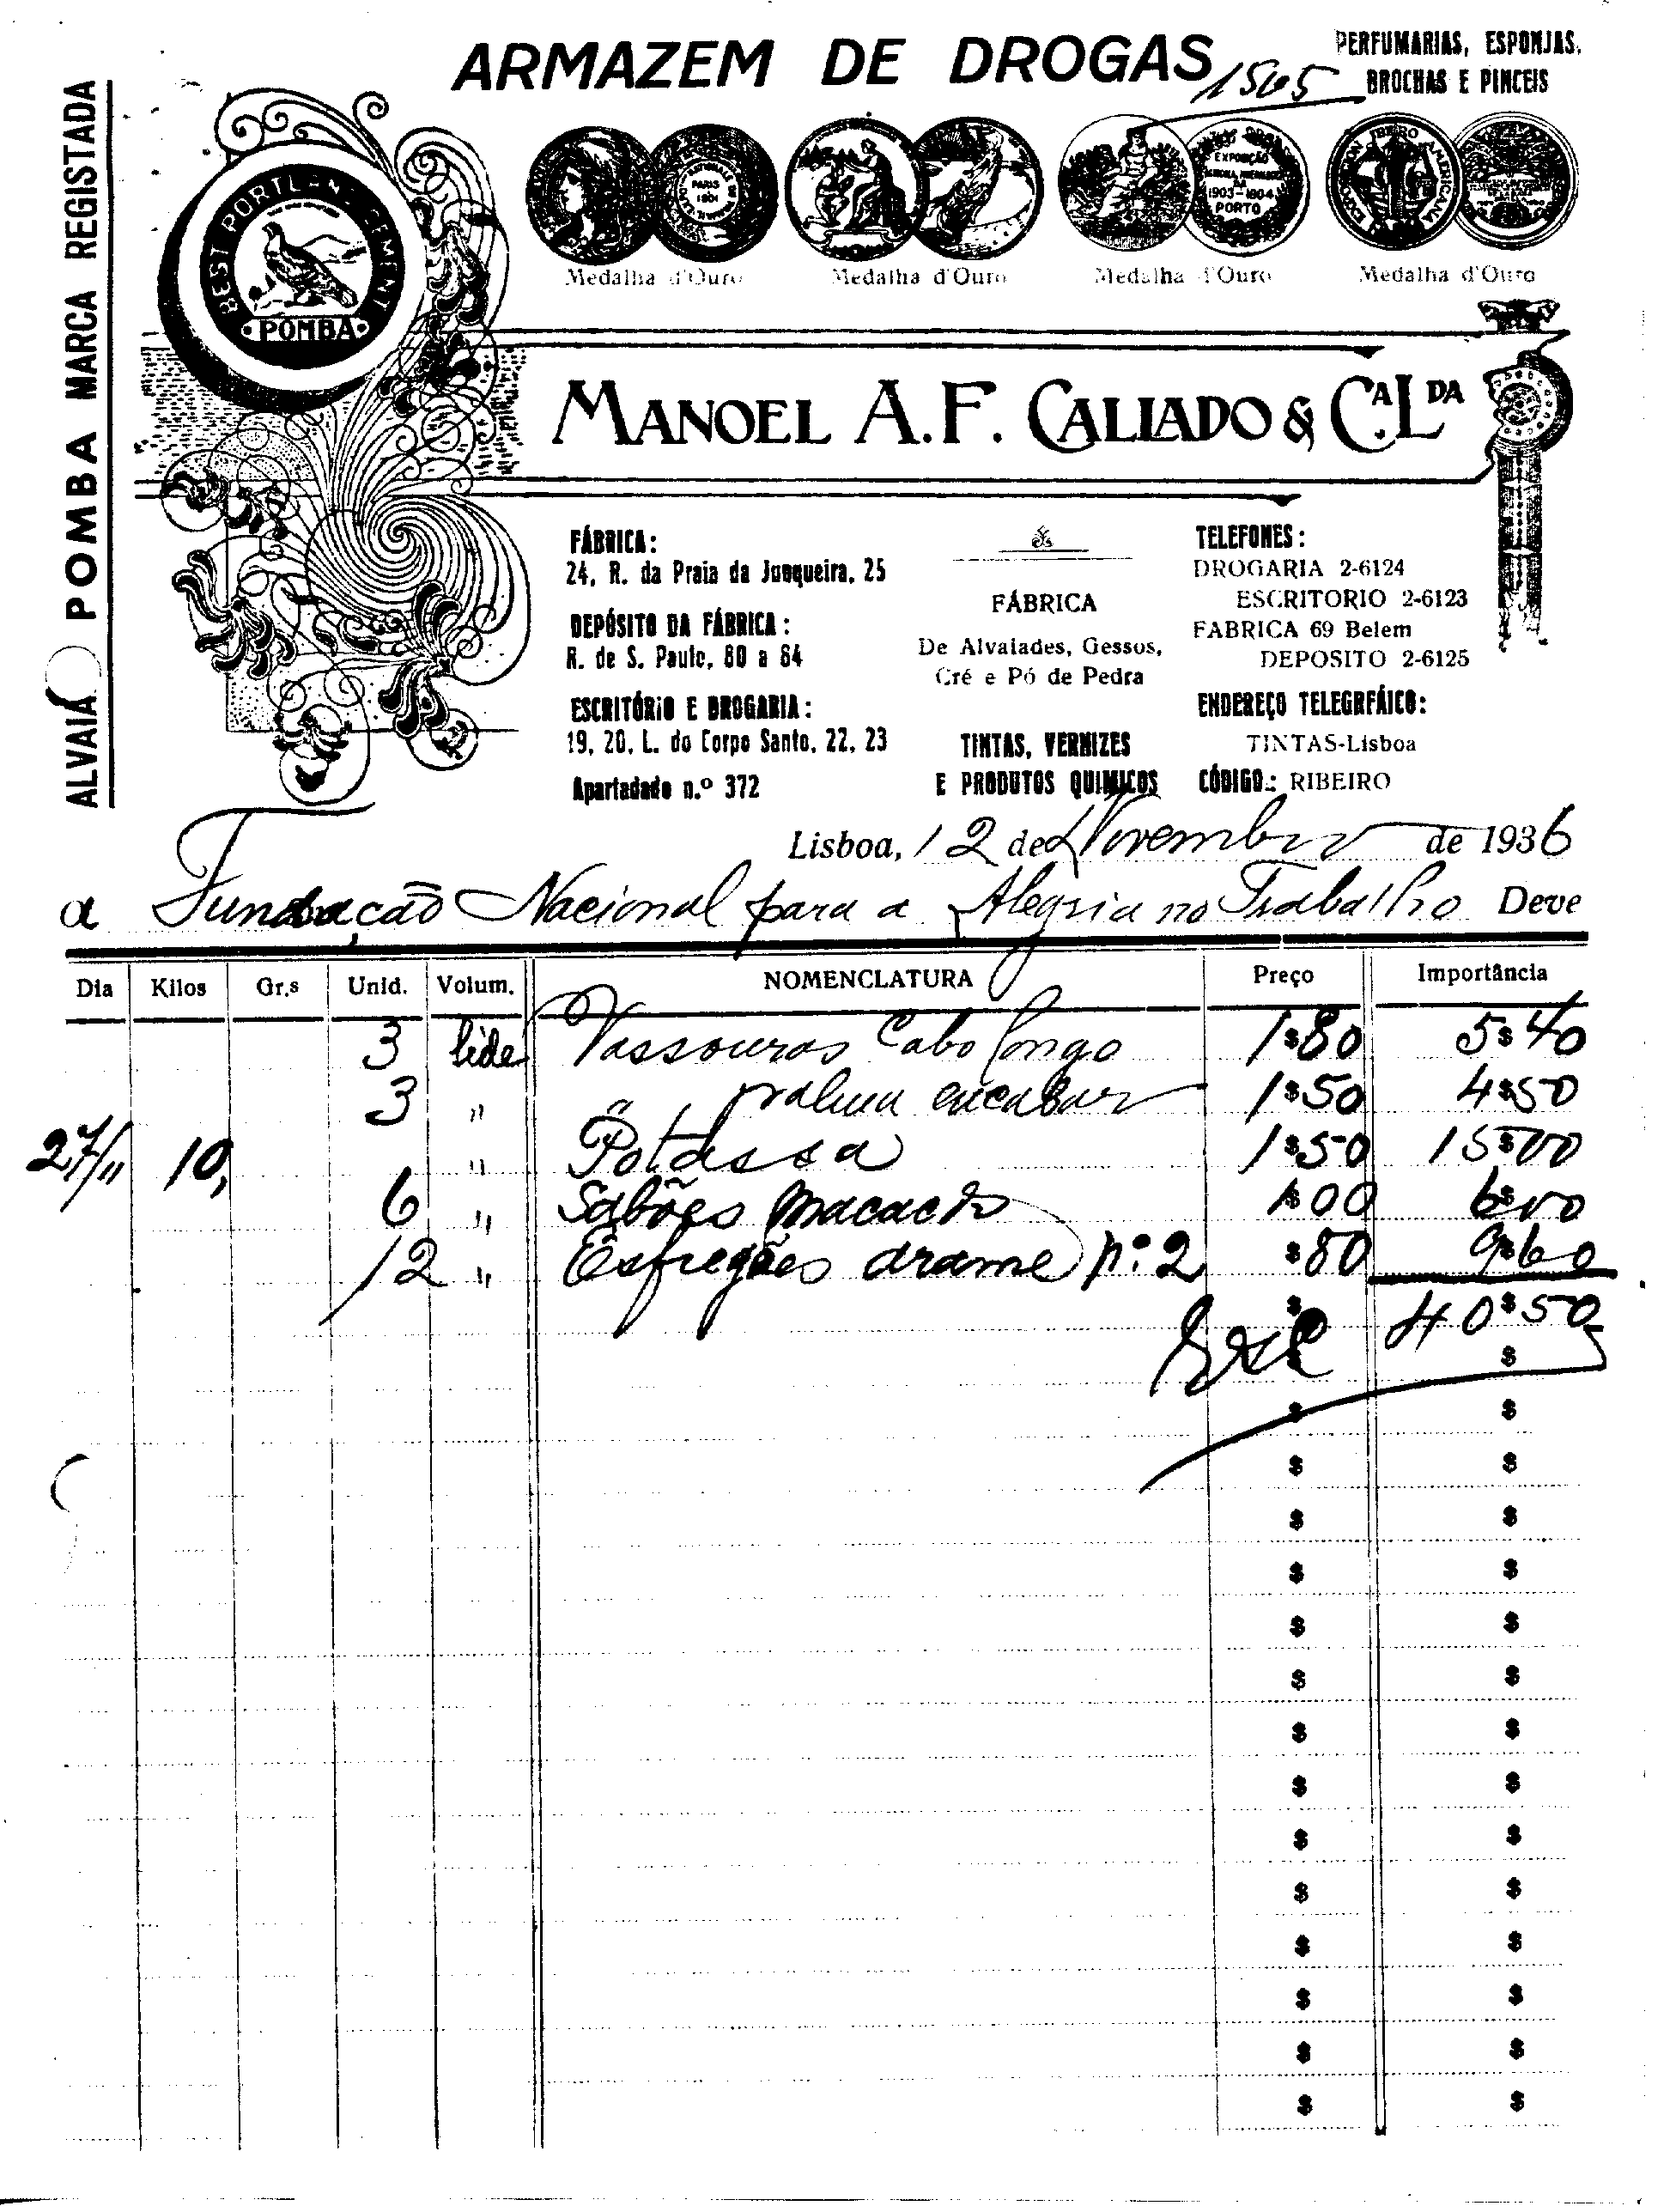 ARMAZEM DE DROGAS
PERFUMARIAS, ESPONJAS,
BROCHAS E PINCEIS
1505
ALVAIADE POMBA MARCA REGISTADA
BEST PORTLAND CEMENT
POMBA
PARIS
EXPOSIÇÃO
1903-1904
PORTO
Medalha d'Ouro Medalha d'Ouro Medalha d'Ouro Medalha d'Ouro
MANOEL A. F. CALLADO & CA. LDA
FÁBRICA:
24, R. da Praia da Junqueira, 25
DEPÓSITO DA FÁBRICA:
R. de S. Paulo, 80 a 84
ESCRITÓRIO E DROGARIA:
19, 20, L. do Corpo Santo, 22, 23
Apartadado n.º 372
FÁBRICA
De Alvaiades, Gessos,
Cré e Pó de Pedra
TINTAS, VERNIZES
E PRODUTOS QUIMICOS
TELEFONES:
DROGARIA 2-6124
ESCRITORIO 2-6123
FABRICA 69 Belem
DEPOSITO 2-6125
ENDEREÇO TELEGRFÁICO:
TINTAS-Lisboa
CÓDIGO.: RIBEIRO
Lisboa, 12 de Novembro de 1936
a Fundação Nacional para a Alegria no Trabalho Deve
Dia Kilos Gr.s Unid. Volum. NOMENCLATURA Preço Importância
3 Vassouras Cabo longo 1$80 5$40
3 " " 1$50 4$50
27/11 10, " Potassa 1$50 15$00
6 " Sabões macaco 1$00 6$00
12 " Esfregões arame nº 2 $80 9$60
Esc 40$50